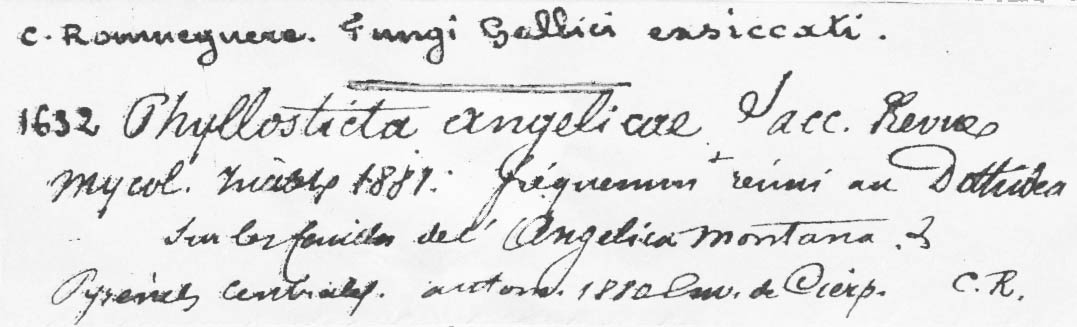 C. Roumeguere. Fungi Gallici exsiccati.
1632 Phyllosticta angelicae Sacc. Revue
Mycol. 1881. fréquemmt réuni au Dothidea
Sur les feuilles de l'Angelica montana.
Pyrénées centrales. autom. 1880 Env. de Cierp. C.R.